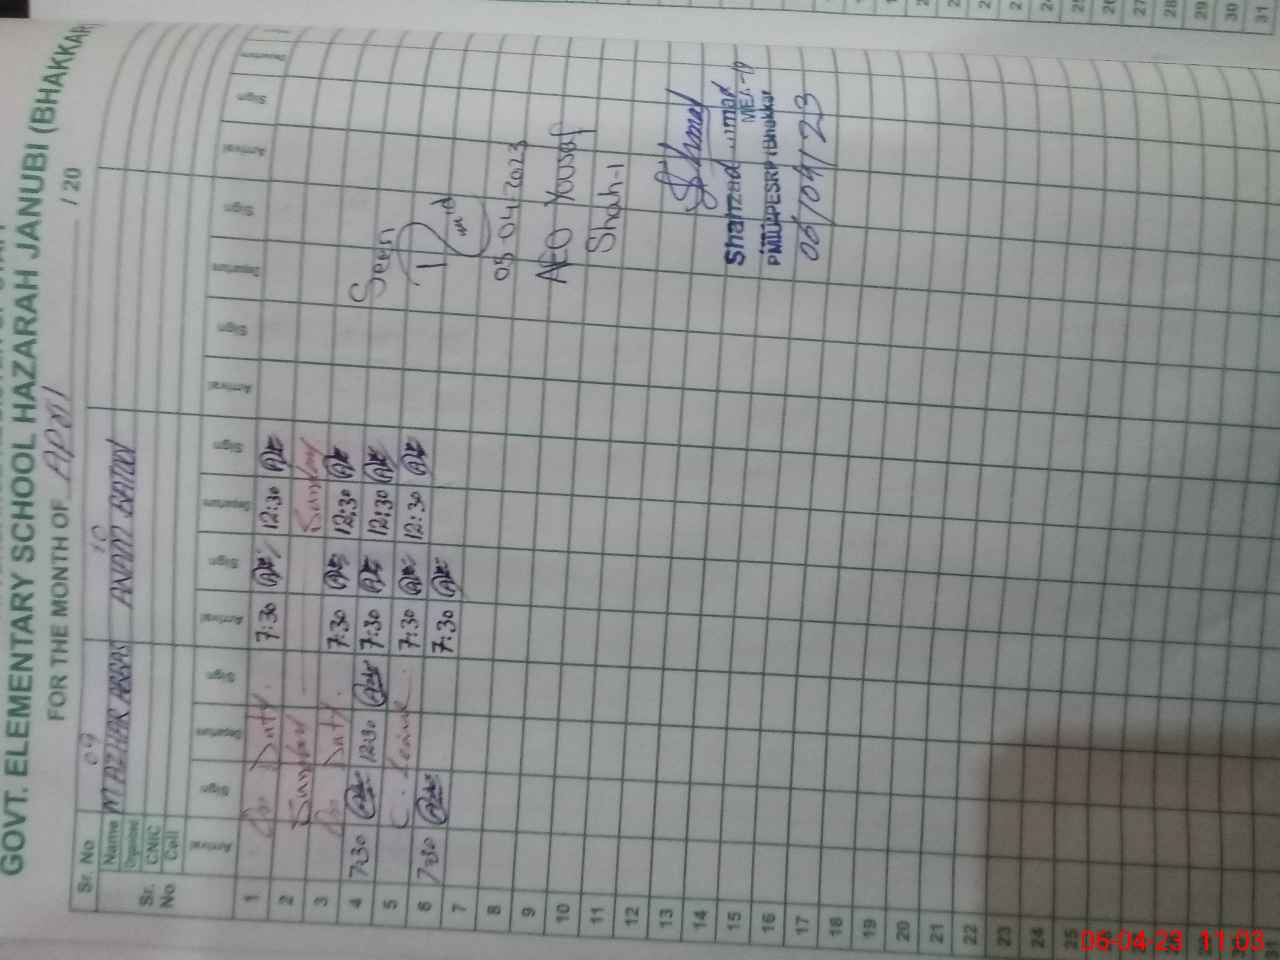 GOVT. ELEMENTARY SCHOOL HAZARAH JANUBI (BHAKKAR
FOR THE MONTH OF April / 20
Sr. No 09 10
Name M AZHAR ABBAS
CNIC
Cell
Sr. No
Arrival Sign Departure Sign Arrival Sign Departure Sign Arrival Sign Departure Sign Arrival Sign Departure
1 On Duty. 7:30 12:30
2 Sunday Sunday
3 On Duty. 7:30 12:30
4 7:30 12:30 7:30 12:30
5 C. Leave. 7:30 12:30
6 7:30 7:30
7
8
9
10
11
12
13
14
15
16
17
18
19
20
21
22
23
24
25
Seen
05-04-2023
AEO Yousaf
Shah-1
Shahzad
PMIU-PESRP Bhakkar
06/04/23
24
25
26
27
28
29
30
31
06-04-23 11:03